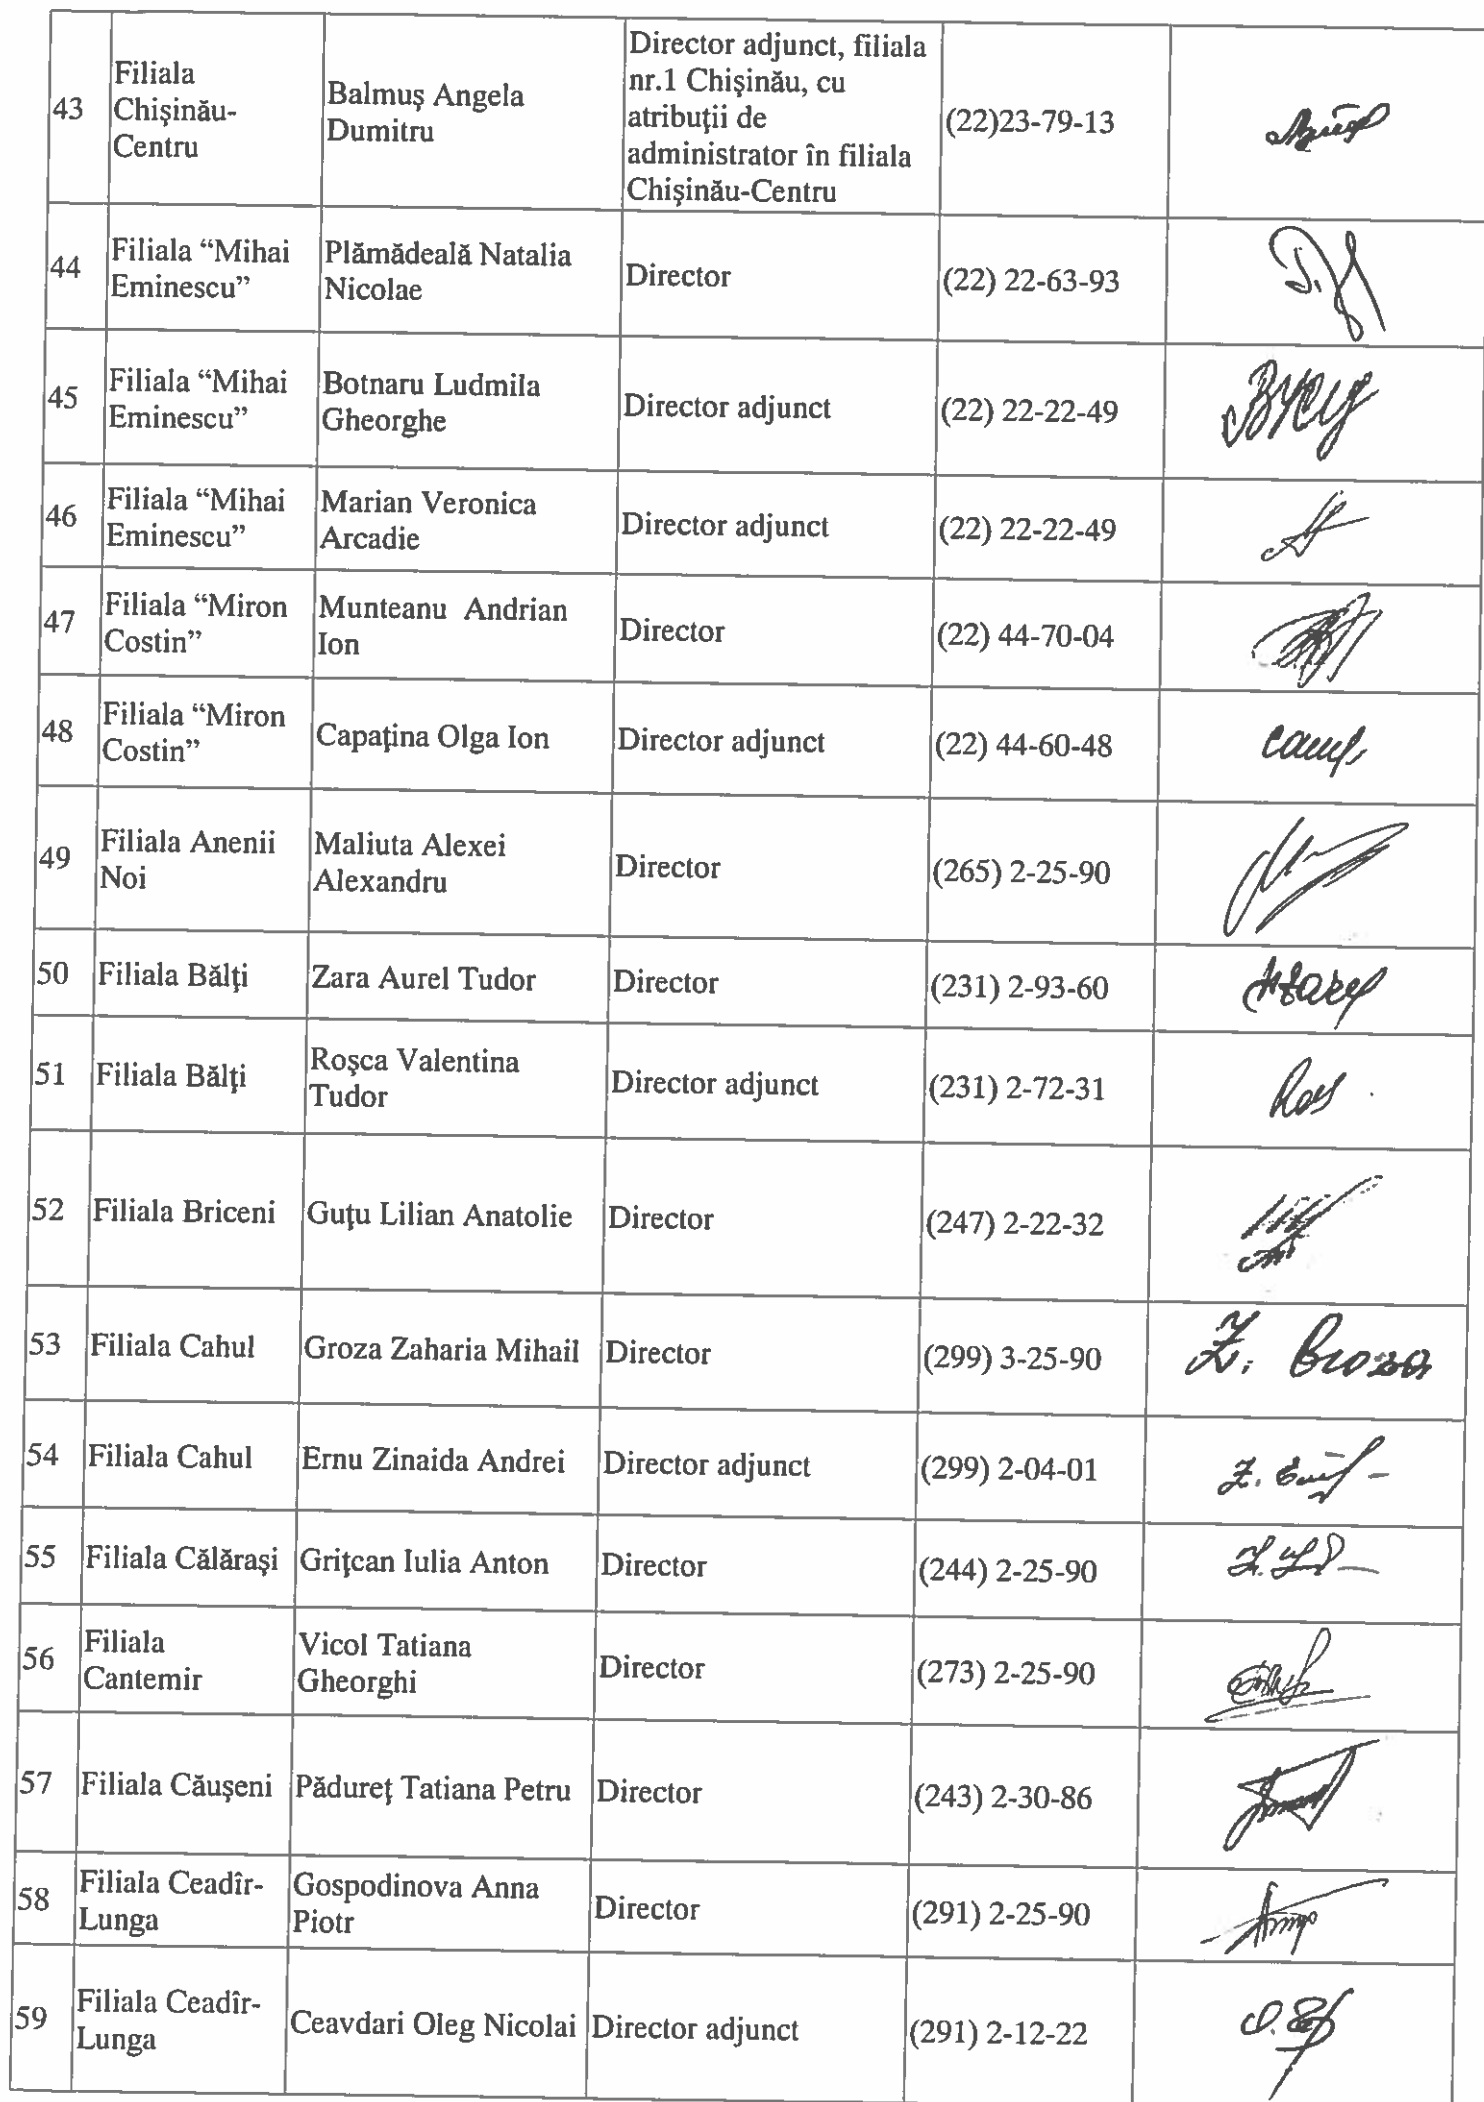 43
Filiala
Chişinău-
Centru
Balmuş Angela
Dumitru
Director adjunct, filiala
nr.1 Chişinău, cu
atribuţii de
administrator în filiala
Chişinău-Centru
(22)23-79-13
44
Filiala “Mihai
Eminescu”
Plămădeală Natalia
Nicolae
Director
(22) 22-63-93
45
Filiala “Mihai
Eminescu”
Botnaru Ludmila
Gheorghe
Director adjunct
(22) 22-22-49
46
Filiala “Mihai
Eminescu”
Marian Veronica
Arcadie
Director adjunct
(22) 22-22-49
47
Filiala “Miron
Costin”
Munteanu Andrian
Ion
Director
(22) 44-70-04
48
Filiala “Miron
Costin”
Capaţina Olga Ion
Director adjunct
(22) 44-60-48
49
Filiala Anenii
Noi
Maliuta Alexei
Alexandru
Director
(265) 2-25-90
50
Filiala Bălţi
Zara Aurel Tudor
Director
(231) 2-93-60
51
Filiala Bălţi
Roşca Valentina
Tudor
Director adjunct
(231) 2-72-31
52
Filiala Briceni
Guţu Lilian Anatolie
Director
(247) 2-22-32
53
Filiala Cahul
Groza Zaharia Mihail
Director
(299) 3-25-90
54
Filiala Cahul
Ernu Zinaida Andrei
Director adjunct
(299) 2-04-01
55
Filiala Călăraşi
Griţcan Iulia Anton
Director
(244) 2-25-90
56
Filiala
Cantemir
Vicol Tatiana
Gheorghi
Director
(273) 2-25-90
57
Filiala Căuşeni
Pădureţ Tatiana Petru
Director
(243) 2-30-86
58
Filiala Ceadîr-
Lunga
Gospodinova Anna
Piotr
Director
(291) 2-25-90
59
Filiala Ceadîr-
Lunga
Ceavdari Oleg Nicolai
Director adjunct
(291) 2-12-22